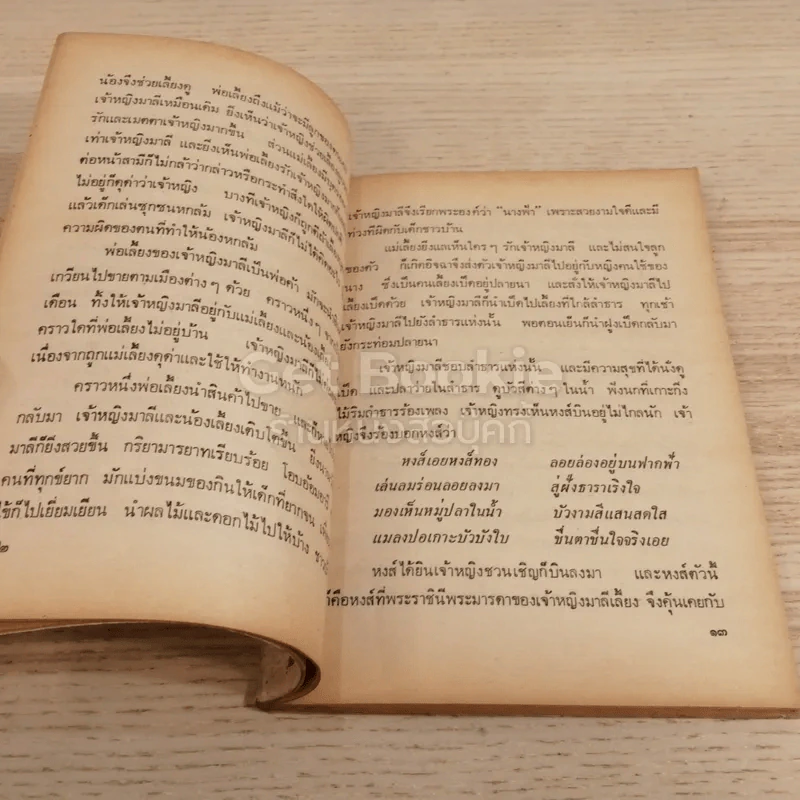 น้องจึงช่วยเลี้ยงดู พ่อเลี้ยงถึงแม้ว่าจะมีลูกของตนเอง
เจ้าหญิงมาลีเหมือนเดิม ยิ่งเห็นว่าเจ้าหญิงช่วยเลี้ยง
รักและเมตตาเจ้าหญิงมากขึ้น ส่วนแม่เลี้ยงมี
เท่าเจ้าหญิงมาลี และยิ่งเห็นพ่อเลี้ยงรักเจ้าหญิงมาลี
ต่อหน้าสามีก็ไม่กล้าว่ากล่าวหรือกระทำสิ่งใดให้
ไม่อยู่ก็ดุด่าว่าเจ้าหญิง บางทีเจ้าหญิงก็ถูกตี
แล้วเด็กเล่นซุกซนหกล้ม เจ้าหญิงมาลีก็ไม่ได้
ความผิดของตนที่ทำให้น้องหกล้ม
พ่อเลี้ยงของเจ้าหญิงมาลีเป็นพ่อค้า มัก
เกวียนไปขายตามเมืองต่างๆ ด้วย คราวหนึ่งๆ
เดือน ทิ้งให้เจ้าหญิงมาลีอยู่กับแม่เลี้ยงและน้อง
คราวใดที่พ่อเลี้ยงไม่อยู่บ้าน เจ้าหญิงมาลีก็
เนื่องจากถูกแม่เลี้ยงดุด่าและใช้ให้ทำงานหนัก
คราวหนึ่งพ่อเลี้ยงนำสินค้าไปขาย และ
กลับมา เจ้าหญิงมาลีและน้องเลี้ยงเติบโตขึ้น
มาลีก็ยิ่งสวยขึ้น กริยามารยาทเรียบร้อย โอบอ้อมอารี
คนที่ทุกข์ยาก มักแบ่งขนมของกินให้เด็กที่ยากจน
ไข้ก็ไปเยี่ยมเยียน นำผลไม้และดอกไม้ไปให้บ้าง
๒
เจ้าหญิงมาลีจึงเรียกพระองค์ว่า "นางฟ้า" เพราะสวยงามใจดีและมี
ท่วงทีผิดกับเด็กชาวบ้าน
แม่เลี้ยงยิ่งแลเห็นใครๆ รักเจ้าหญิงมาลี และไม่สนใจลูก
ของตัว ก็เกิดอิจฉาจึงส่งตัวเจ้าหญิงมาลีไปอยู่กับหญิงคนใช้ของ
นาง ซึ่งเป็นคนเลี้ยงเป็ดอยู่ปลายนา และสั่งให้เจ้าหญิงมาลีไป
เลี้ยงเป็ดด้วย เจ้าหญิงมาลีก็นำเป็ดไปเลี้ยงที่ใกล้ลำธาร ทุกเช้า
เจ้าหญิงมาลีไปยังลำธารแห่งนั้น พอตอนเย็นก็นำฝูงเป็ดกลับมา
ยังกระท่อมปลายนา
เจ้าหญิงมาลีชอบลำธารแห่งนั้น และมีความสุขที่ได้นั่งดู
เป็ด และปลาว่ายในลำธาร ดูบัวสีต่างๆ ในน้ำ ฟังนกที่เกาะกิ่ง
ไม้ริมลำธารร้องเพลง เจ้าหญิงทรงเห็นหงส์บินอยู่ไม่ไกลนัก เจ้า
หญิงจึงร้องบอกหงส์ว่า
หงส์เอยหงส์ทอง ลอยล่องอยู่บนฟากฟ้า
เล่นลมร่อนลอยลงมา สู่ฝั่งธาราเริงใจ
มองเห็นหมู่ปลาในน้ำ บัวงามสีแสนสดใส
แมลงปอเกาะบัวบังใบ ชื่นตาชื่นใจจริงเอย
หงส์ได้ยินเจ้าหญิงชวนเชิญก็บินลงมา และหงส์ตัวนี้
ก็คือหงส์ที่พระราชินีพระมารดาของเจ้าหญิงมาลีเลี้ยง จึงคุ้นเคยกับ
๑๓
Get Bookie
ร้านหนังสือบุ๊คกี้